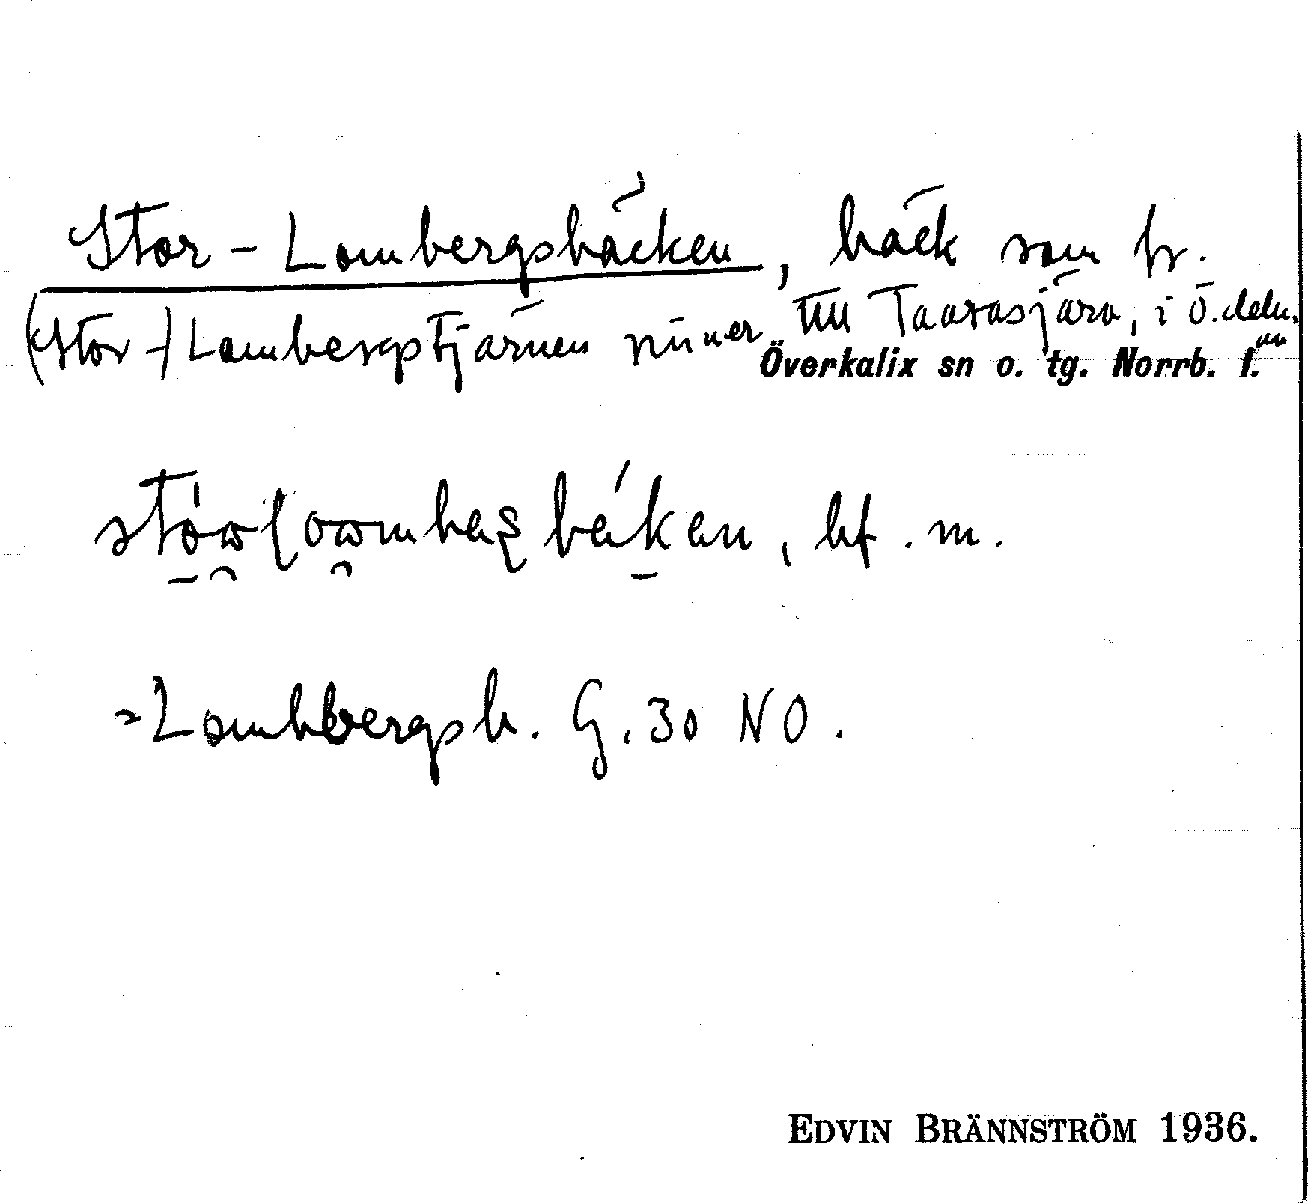 Stor-Lombergsbäcken, bäck som fr.
(Stor-)Lombergstjärnen rinner till Taarasjärv, i ö. delen av
Överkalix sn o. tg. Norrb. l.
bäken, bf. m.
=Lombbergsb. G. 30 NO.
EDVIN BRÄNNSTRÖM 1936.